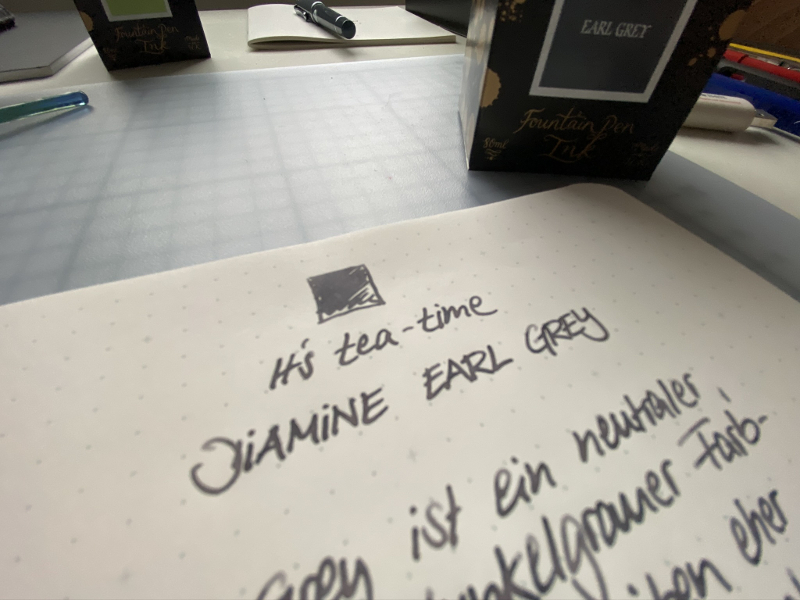 Fountain Pen
Ink
EARL GREY
Fountain Pen
Ink
It's tea-time
DIAMINE EARL GREY
Grey ist ein neutraler
dunkelgrauer Farb-
eher